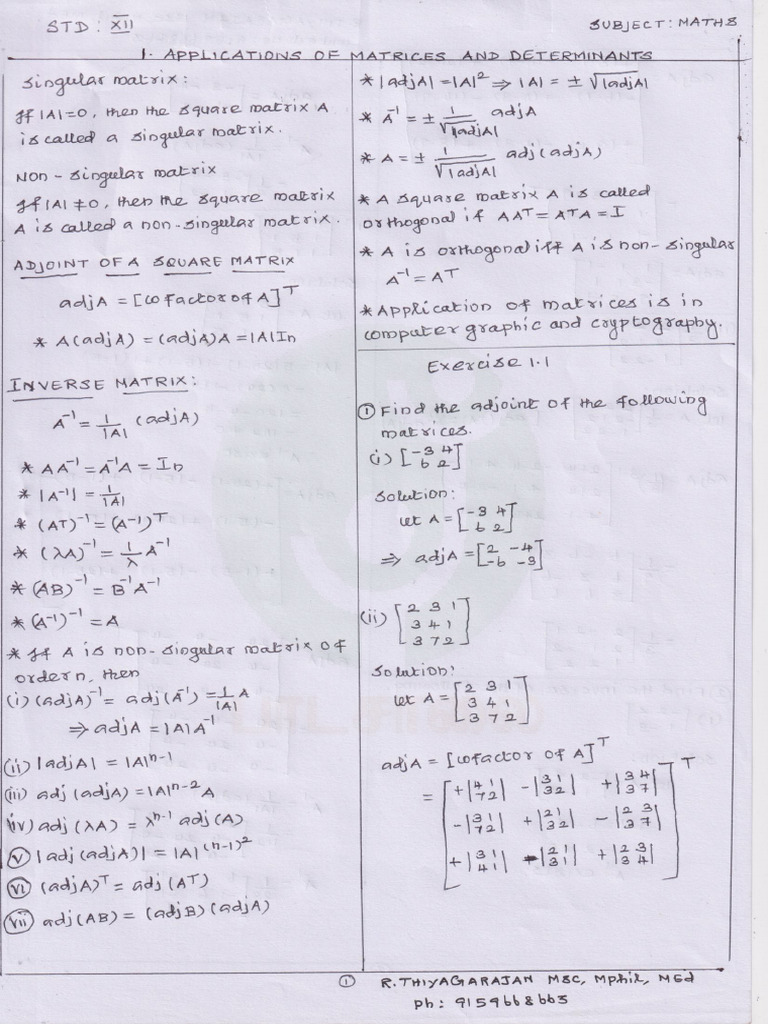 STD: XII
SUBJECT: MATHS
1. APPLICATIONS OF MATRICES AND DETERMINANTS
Singular matrix:
If |A|=0, then the square matrix A
is called a singular matrix.
Non-singular matrix
If |A| ≠ 0, then the square matrix
A is called a non-singular matrix.
ADJOINT OF A SQUARE MATRIX
adjA = [cofactor of A]ᵀ
* A(adjA) = (adjA)A = |A|In
INVERSE MATRIX:
A⁻¹ = 1/|A| (adjA)
* AA⁻¹ = A⁻¹A = In
* |A⁻¹| = 1/|A|
* (AT)⁻¹ = (A⁻¹)ᵀ
* (λA)⁻¹ = 1/λ A⁻¹
* (AB)⁻¹ = B⁻¹A⁻¹
* (A⁻¹)⁻¹ = A
* If A is non-singular matrix of
order n, then
(i) (adjA)⁻¹ = adj(A⁻¹) = 1/|A| A
⇒ adjA = |A|A⁻¹
(ii) |adjA| = |A|ⁿ⁻¹
(iii) adj(adjA) = |A|ⁿ⁻² A
(iv) adj(λA) = λⁿ⁻¹ adj(A)
(v) |adj(adjA)| = |A|⁽ⁿ⁻¹⁾²
(vi) (adjA)ᵀ = adj(AT)
(vii) adj(AB) = (adjB)(adjA)
* |adjA| = |A|² ⇒ |A| = ± √|adjA|
* A⁻¹ = ± 1/√|adjA| adjA
* A = ± 1/√|adjA| adj(adjA)
* A square matrix A is called
orthogonal if AAᵀ = ATA = I
* A is orthogonal iff A is non-singular
A⁻¹ = Aᵀ
* Application of matrices is in
computer graphic and cryptography.
Exercise 1.1
① Find the adjoint of the following
matrices.
(i) [-3 4
6 2]
Solution:
Let A = [-3 4
6 2]
⇒ adjA = [2 -4
-6 -3]
(ii) [2 3 1
3 4 1
3 7 2]
Solution:
Let A = [2 3 1
3 4 1
3 7 2]
adjA = [cofactor of A]ᵀ
= [+|4 1| -|3 1| +|3 4| ᵀ
|7 2| |3 2| |3 7|
-|3 1| +|2 1| -|2 3|
|7 2| |3 2| |3 7|
+|3 1| -|2 1| +|2 3|
|4 1| |3 1| |3 4|]
①
R.THIYAGARAJAN MSC, Mphil, MEd
Ph: 9159668663